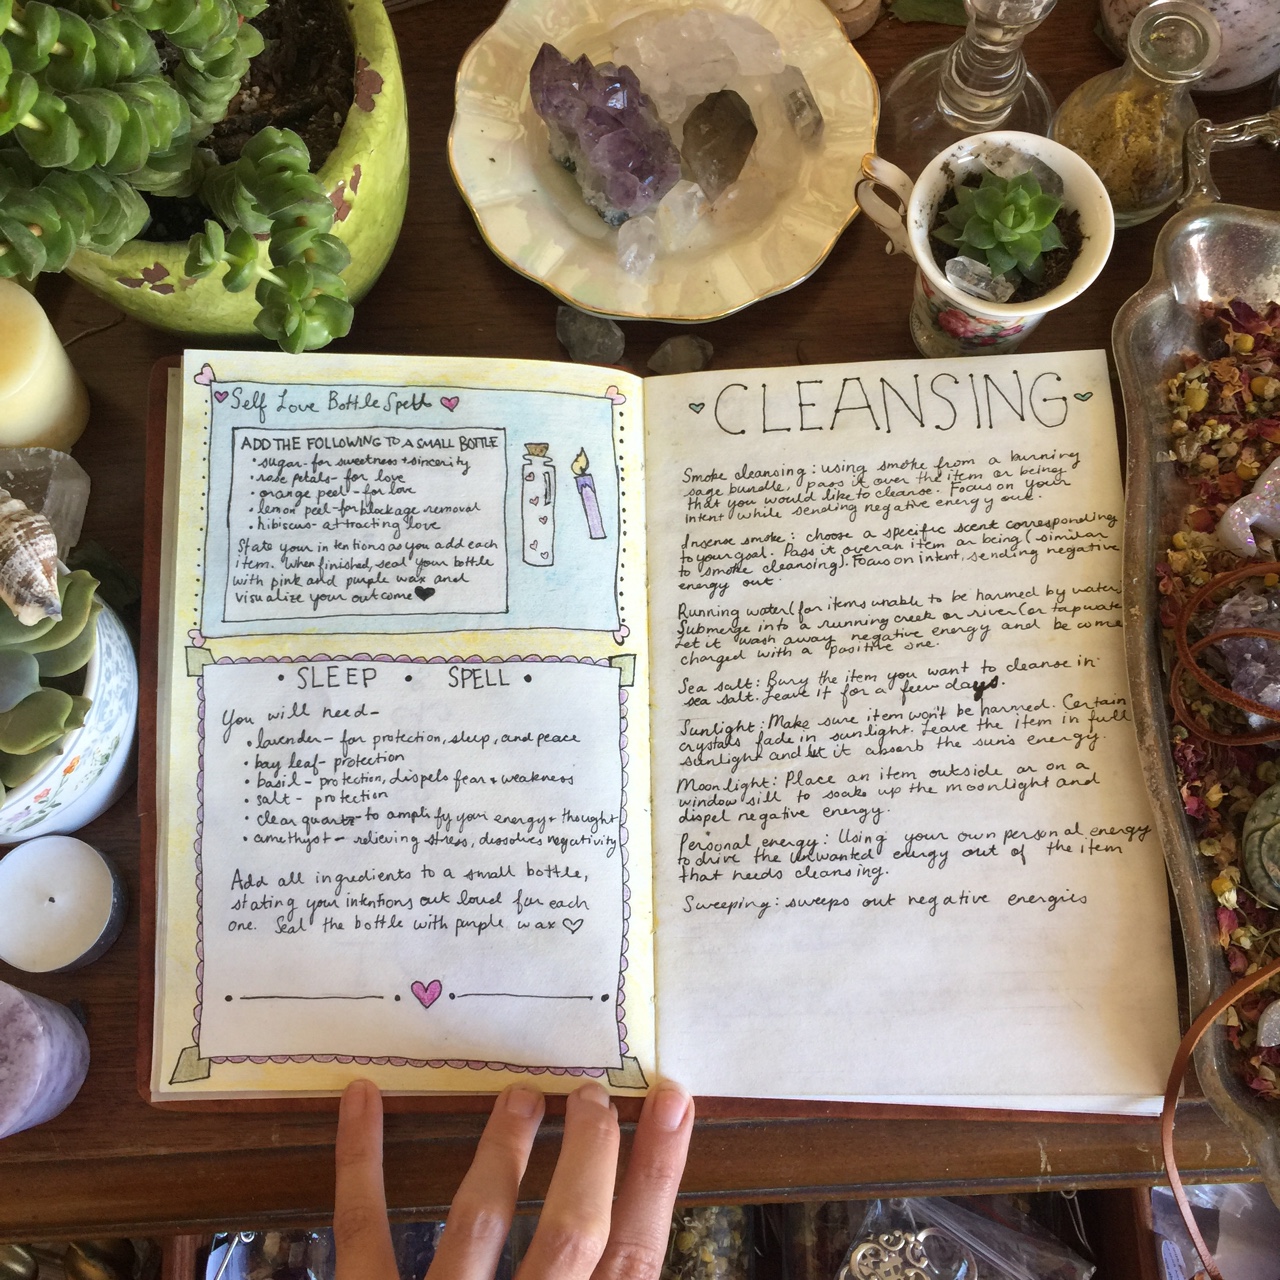 Self Love Bottle Spell
ADD THE FOLLOWING TO A SMALL BOTTLE
• sugar- for sweetness + sincerity
• rose petals- for love
• orange peel - for love
• lemon peel-for blockage removal
• hibiscus- attracting love
State your intentions as you add each
item. When finished, seal your bottle
with pink and purple wax and
visualize your outcome
• SLEEP • SPELL •
You will need-
• lavender- for protection, sleep, and peace
• bay leaf- protection
• basil- protection, dispels fear + weakness
• salt - protection
• clear quartz- to amplify your energy + thought
• amethyst- relieving stress, dissolves negativity
Add all ingredients to a small bottle,
stating your intentions out loud for each
one. Seal the bottle with purple wax ♡
CLEANSING
Smoke cleansing: using smoke from a burning
sage bundle, pass it over the item or being
that you would like to cleanse. Focus on your
intent while sending negative energy out.
Insense smoke: choose a specific scent corresponding
to your goal. Pass it over an item or being (similar
to smoke cleansing). Focus on intent, sending negative
energy out.
Running water (for items unable to be harmed by water)
Submerge into a running creek or river (or tap water
Let it wash away negative energy and become
charged with a positive one.
Sea salt: Bury the item you want to cleanse in
sea salt. Leave it for a few days.
Sunlight: Make sure item won't be harmed. Certain
crystals fade in sunlight. Leave the item in full
sunlight and let it absorb the sun's energy.
Moonlight: Place an item outside or on a
window sill to soak up the moonlight and
dispel negative energy.
Personal energy: Using your own personal energy
to drive the unwanted energy out of the item
that needs cleansing.
Sweeping: sweeps out negative energies